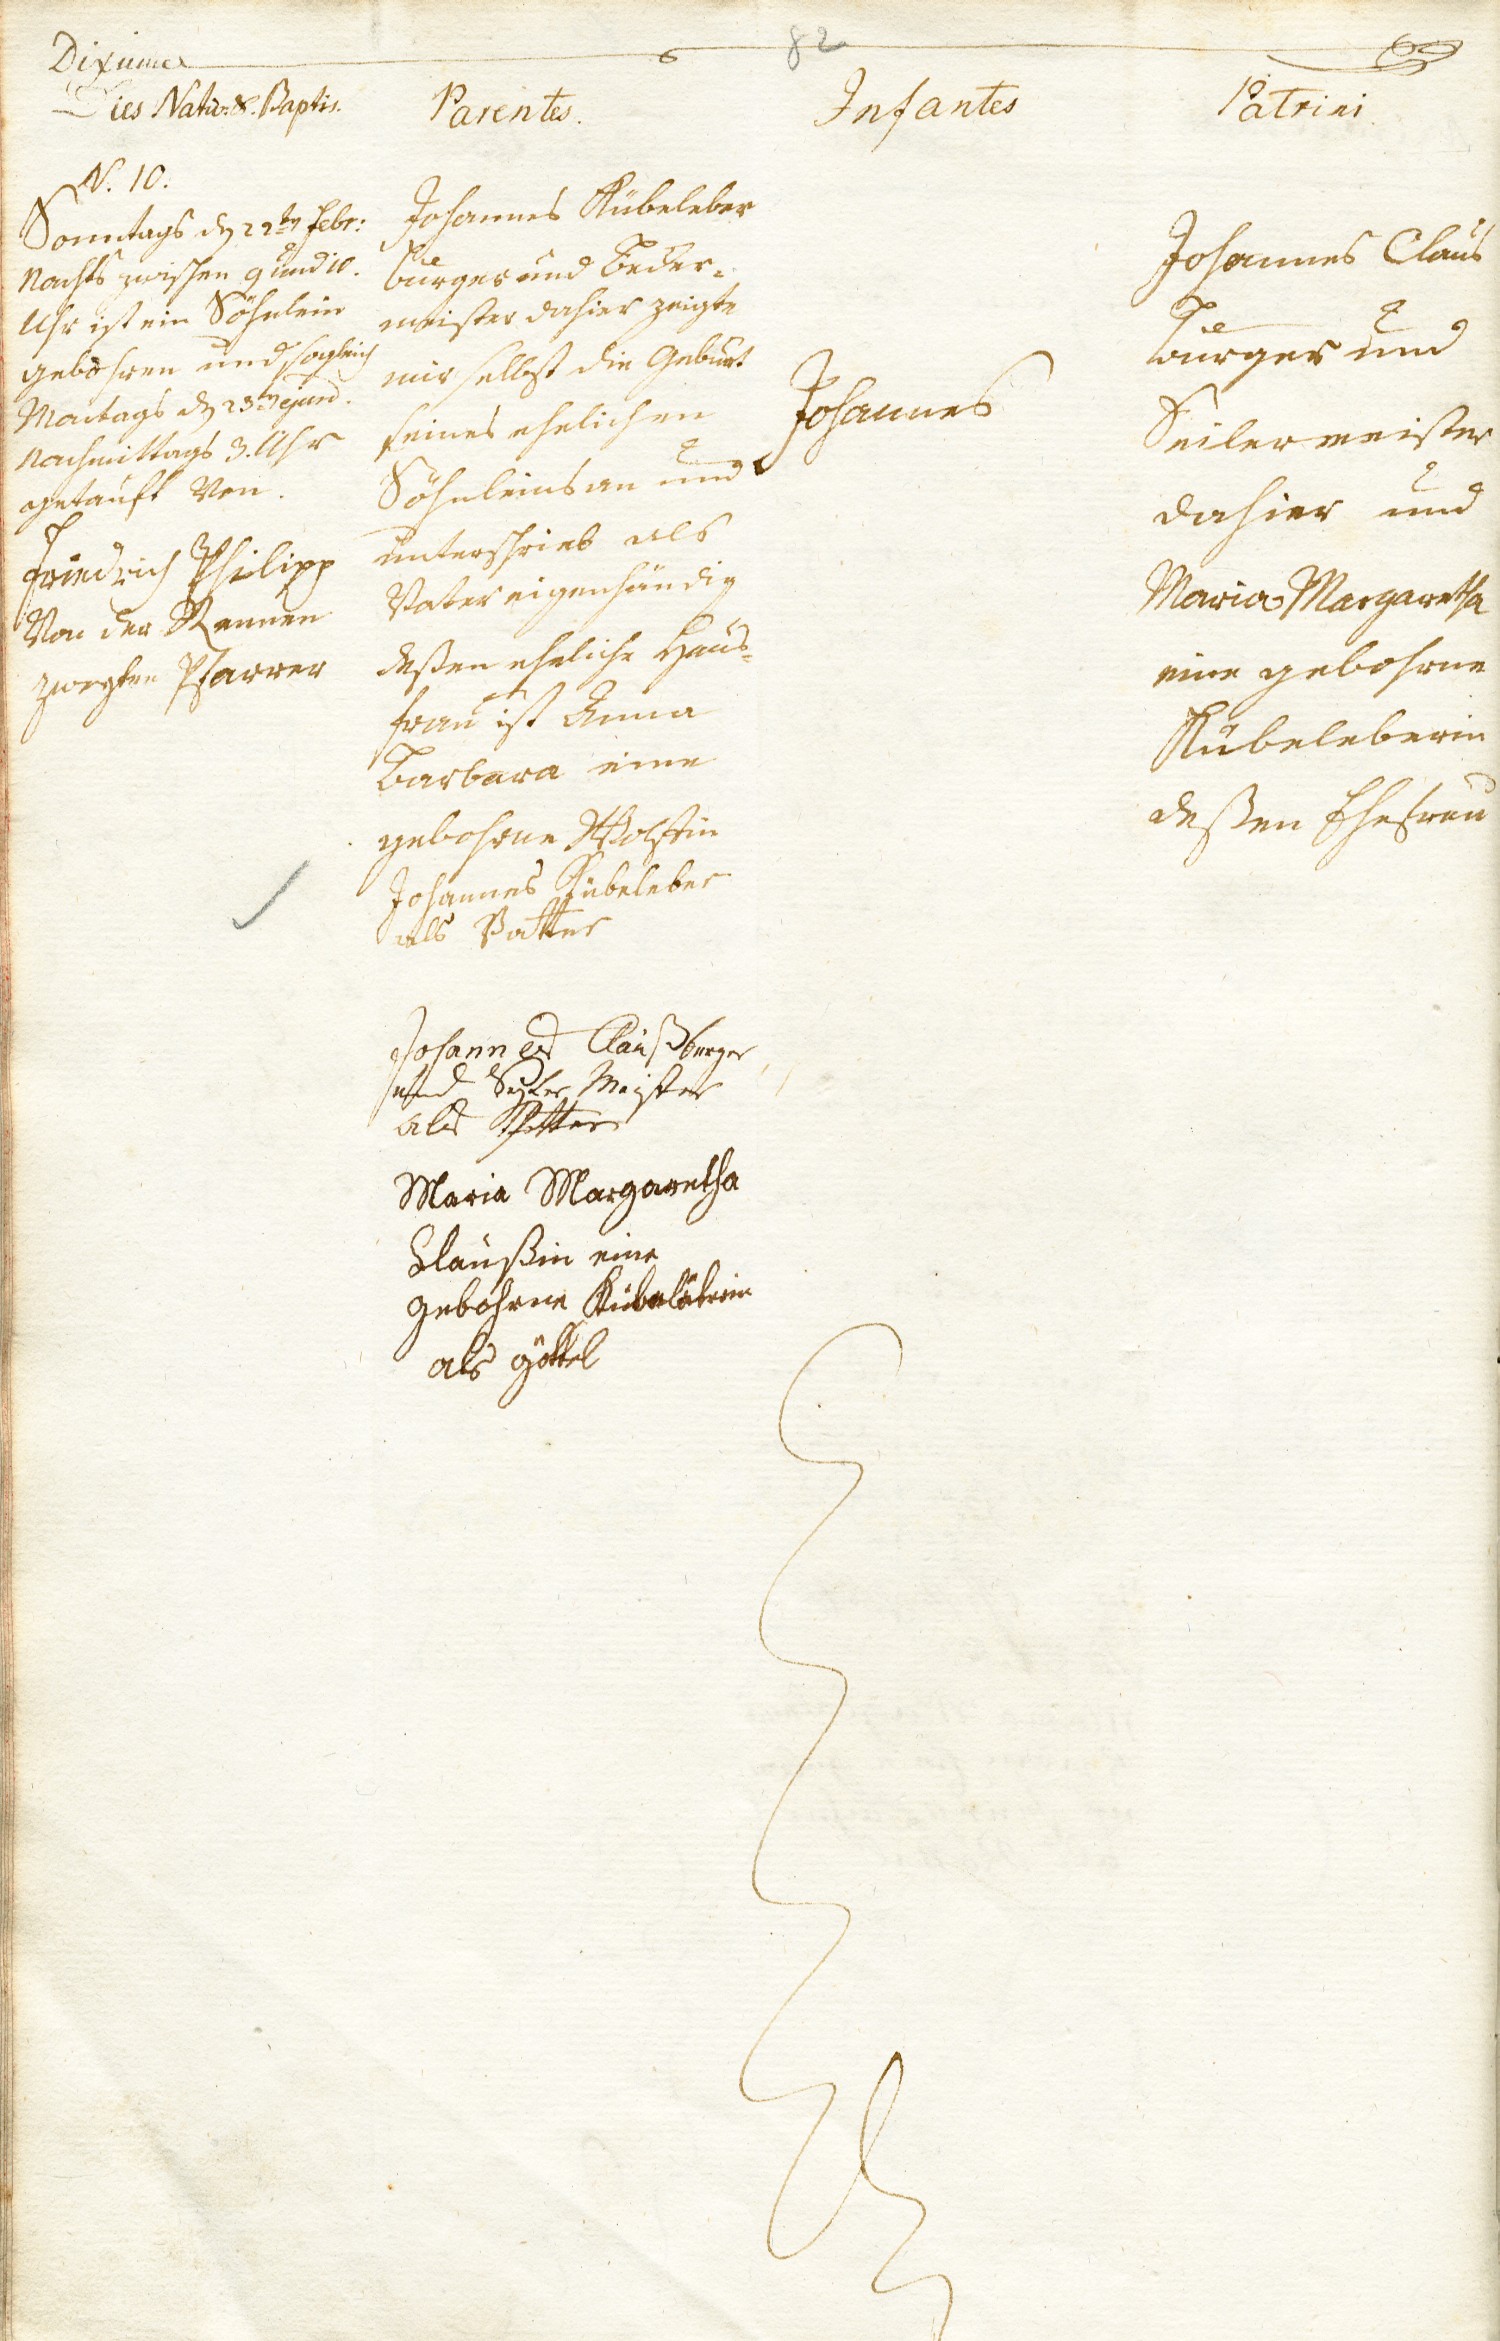 82
Dies Nativ. & Baptis.
Parentes.
Infantes
Patrini
N. 10.
Sonntags d 22ten Febr:
Nachts zwischen 9 und 10.
Uhr ist ein Söhnlein
gebohren und sogleich
Montags d 23ten ejusd.
Nachmittags 3. Uhr
getauft von.
Friedrich Philipp
Von der Rennen
zweyten Pfarrer
Johannes Kübeleber
Burger und
meister dahier zeigte
mir selbst die Geburt
seines ehelichen
Söhnleins an und
unterschrieb als
Vater eigenhändig
deßen eheliche Haus-
frau ist Anna
Barbara eine
gebohrne Wolfin
Johannes Kübeleber
als Vatter
Johannes Clauß burger
und Seyler Meister
als Petter
Maria Margaretha
Claußin eine
gebohrne
als göttel
Johannes
Johannes Claus
Burger und
Seilermeister
dahier und
Maria Margaretha
eine gebohrne
Kübeleberin
deßen Ehefrau